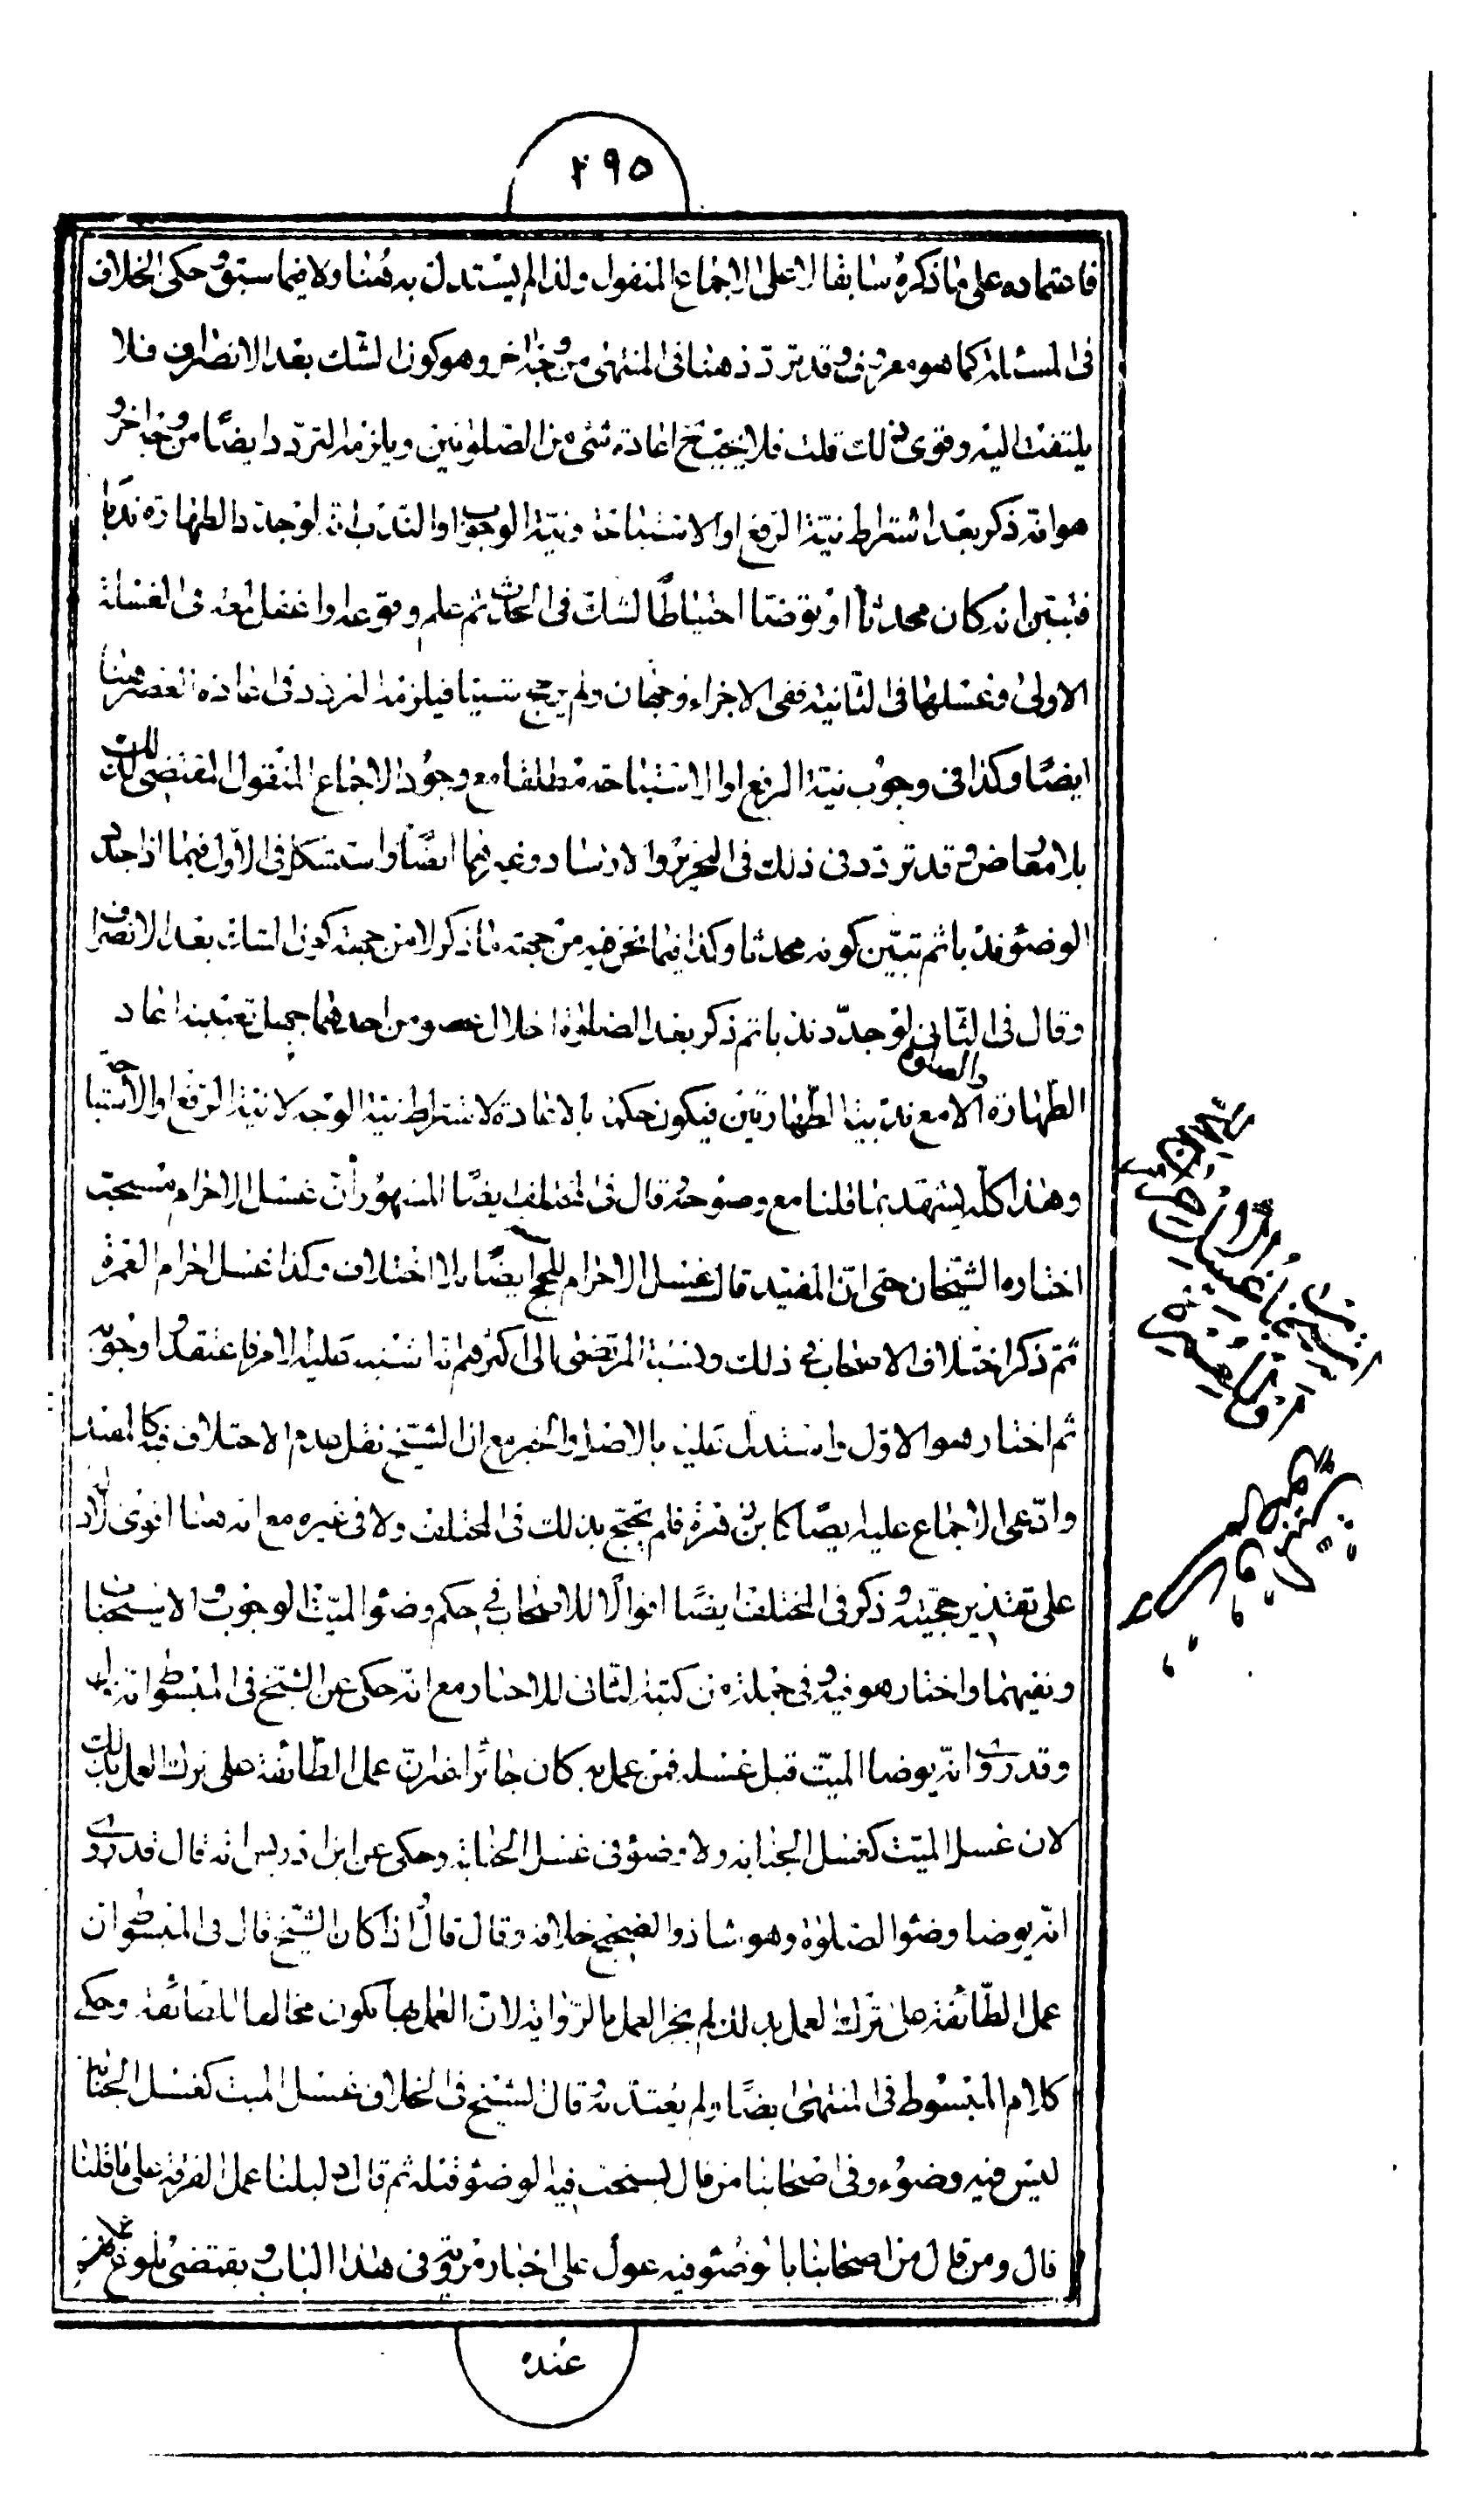 ٢٩٥
فاعتماده على ما ذكره سابقا لا على الاجماع المنقول ولذا لم يستدل به هنا ولا فيما سبق وحكى الخلاف
فى المسئلة كما هو معروف وقد تردد هنا فى المنتهى من وجه اخر وهو كون الشك بعد الانصراف فلا
يلتفت اليه وقوى ذلك قلت فلا يجب ح اعادة شىء من الصلوتين ويلزمه التردد ايضا من وجه اخر و
هو انه ذكر بعد اشتراط نية الرفع او الاستباحة ونية الوجوب او الندب انه لو جدد الطهارة ندبا
فتبين انه كان محدثا او توضا احتياطا لشك فى الحدث ثم علم وقوعه او اغفل لمعة فى الغسلة
الاولى وغسلها فى الثانية ففى الاجزاء وجهان ولم يرجح شيئا فيلزمه التردد فى اعادة العصر هنا
ايضا وكذا فى وجوب نية الرفع او الاستباحة مطلقا مع وجود الاجماع المنقول المقتضى لذلك
بلا معارض وقد تردد فى ذلك فى التحرير والارشاد وغيرهما ايضا واستشكل فى الاول فيما اذا جدد
الوضوء ندبا ثم تبين كونه محدثا وكذا فيما نحن فيه من جهة ما ذكر لا من جهة كون الشك بعد الانصراف
وقال فى الثانى لو جدد ندبا ثم ذكر بعد الصلوة اخلال عضو من احدهما جهل تعيينه اعاد
الطهارة والصلوة الا مع ندبية الطهارتين فيكون حكمه بالاعادة لاشتراط نية الوجه لا نية الرفع او الاستباحة
وهذا كله يشهد بما قلنا مع وضوحه قال فى المختلف ايضا المشهور ان غسل الاحرام مستحب
اختاره الشيخان حتى ان المفيد قال غسل الاحرام للحج ايضا بلا اختلاف وكذا غسل احرام العمرة
ثم ذكر اختلاف الاصحاب فى ذلك ونسبة المرتضى الى اكثرهم انه اشتبه عليه الامر فاعتقدوا وجوبه
ثم اختار هو الاول واستدل عليه بالاصل والخبر مع ان الشيخ نقل عدم الاختلاف فيه كالمفيد
وادعى الاجماع عليه ايضا كابن زهرة فلم يحتج بذلك فى المختلف ولا فى غيره مع انه هنا اقوى
على تقدير حجيته وذكر فى المختلف ايضا اقوالا للاصحاب فى حكم وضوء الميت الوجوب والاستحباب
ونفيهما واختار هو فيه وفى جملة من كتبه الثانى للاخبار مع انه حكى عن الشيخ فى المبسوط انه قال
وقد روى انه يوضا الميت قبل غسله فمن عمل به كان جائزا غير ان عمل الطائفة على ترك العمل بذلك
لان غسل الميت كغسل الجنابة ولا وضوء فى غسل الجنابة وحكى عن ابن ادريس انه قال قد روى
انه يوضا وضوء الصلوة وهو شاذ والصحيح خلافه وقال قال اذا كان الشيخ قال فى المبسوط ان
عمل الطائفة على ترك العمل بذلك لم يجز العمل بالرواية لان العمل بها يكون مخالفا للطائفة وحكى
كلام المبسوط فى المنتهى ايضا ولم يعتد به قال الشيخ فى الخلاف غسل الميت كغسل الجنابة
ليس فيه وضوء وفى اصحابنا من قال يستحب فيه الوضوء قبله ثم قال دليلنا عمل الفرقة على ما قلناه
قال ومن قال من اصحابنا بالوضوء فيه عول على اخبار مروية فى هذا الباب ويقتضى بلوغ
عنده